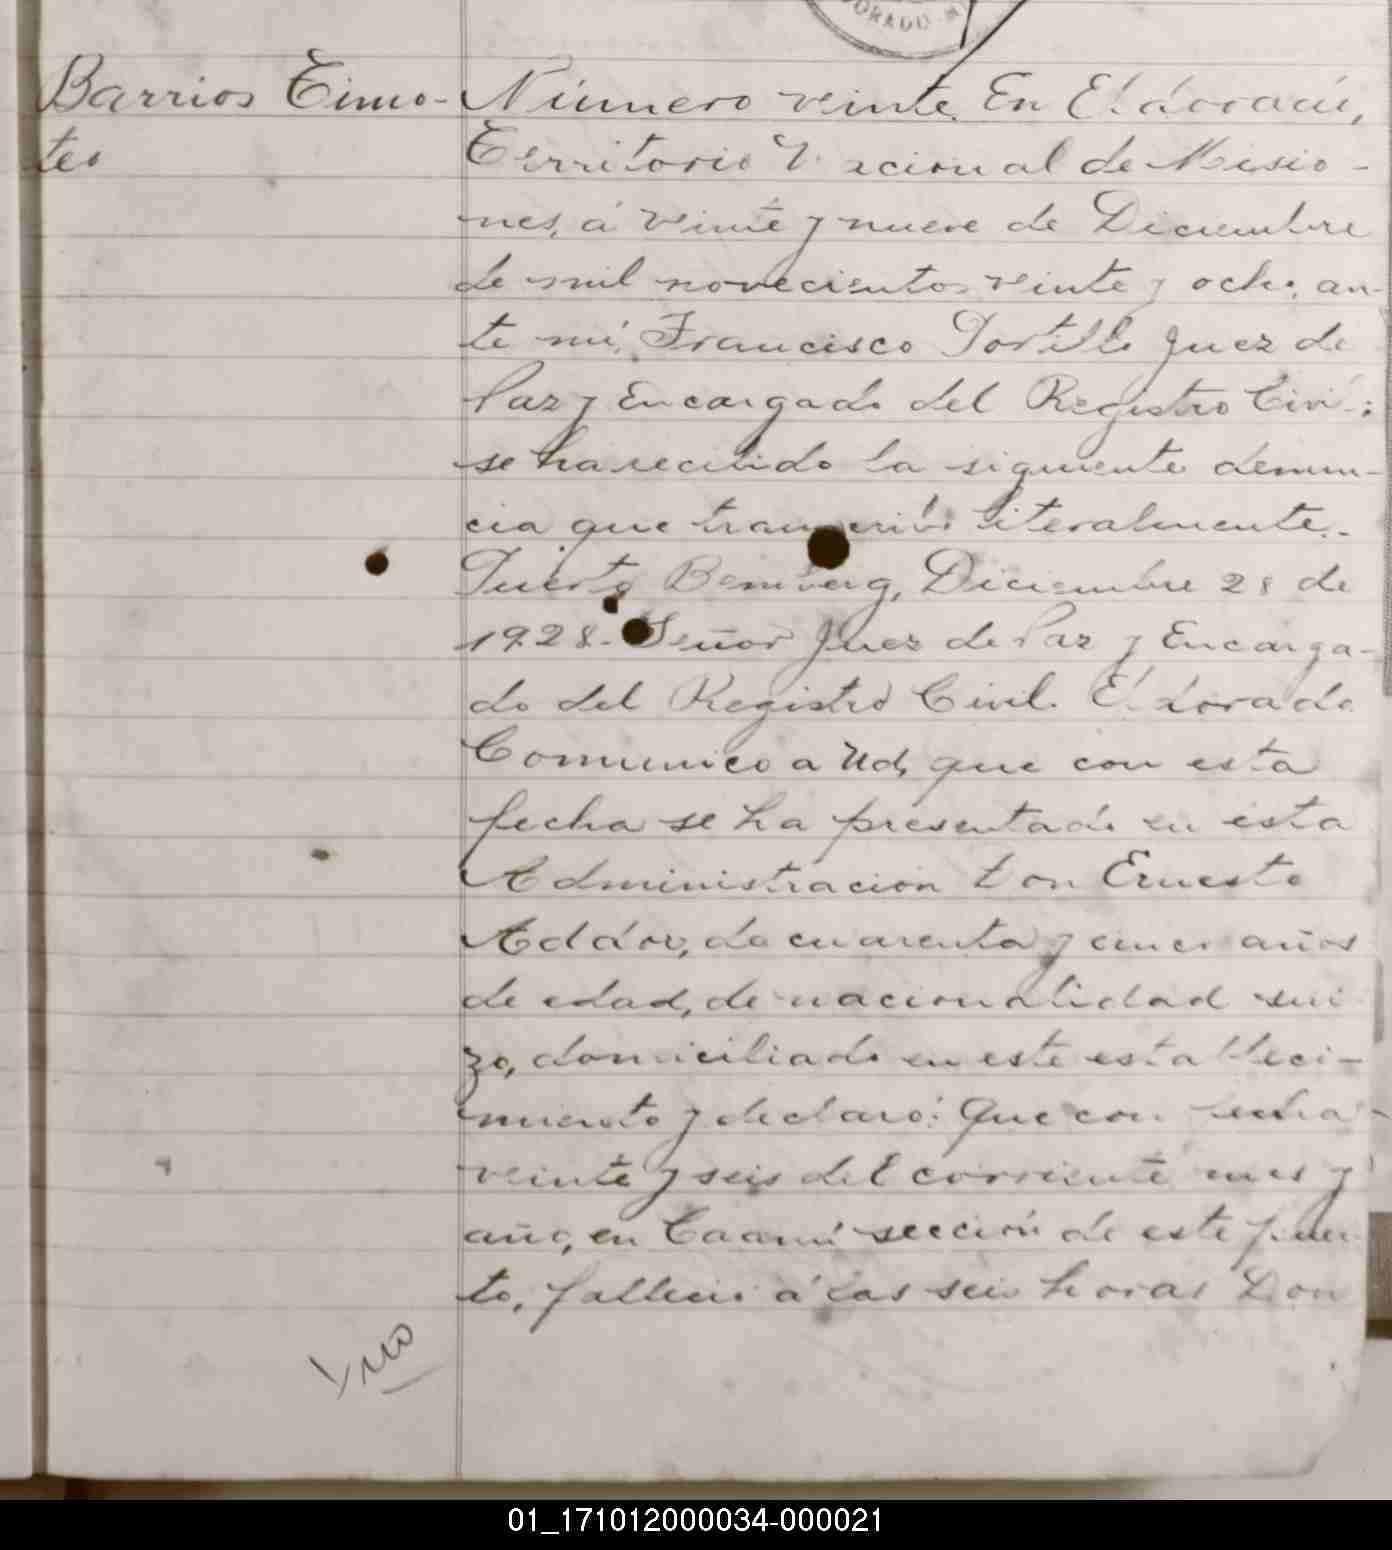 ORADO M
Barrios Timo-
teo
Número veinte. En Eldorado,
Territorio Nacional de Misio-
nes, á veinte y nueve de Diciembre
de mil novecientos veinte y ocho, an-
te mi, Francisco Portillo Juez de
Paz y Encargado del Registro Civil:
se ha recibido la siguiente denun-
cia que transcribo literalmente.-
Puerto Bemberg, Diciembre 28 de
1928.- Señor Juez de Paz y Encarga-
do del Registro Civil. Eldorado
Comunico a Ud, que con esta
fecha se ha presentado en esta
Administración Don Ernesto
Addor, de cuarenta y cinco años
de edad, de nacionalidad sui
zo, domiciliado en este estableci-
miento y declaró: Que con fecha
veinte y seis del corriente mes y
año, en Caamí sección de este puer
to, falleció á las seis horas Don
01_171012000034-000021